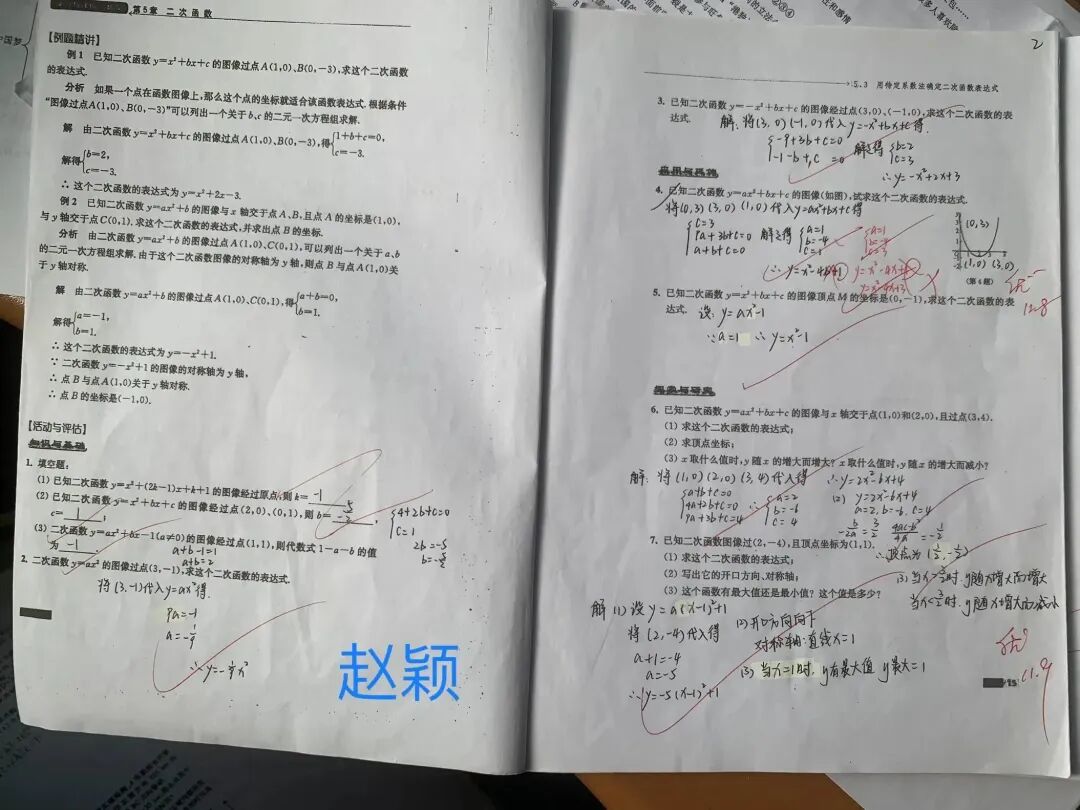 第5章 二次函数
【例题精讲】
例1 已知二次函数y=x²+bx+c的图像过点A(1,0)、B(0,-3),求这个二次函数
的表达式.
分析 如果一个点在函数图像上,那么这个点的坐标就适合该函数表达式.根据条件
“图像过点A(1,0)、B(0,-3)”可以列出一个关于b、c的二元一次方程组求解.
解 由二次函数y=x²+bx+c的图像过点A(1,0)、B(0,-3),得{1+b+c=0,
c=-3.
解得{b=2,
c=-3.
∴ 这个二次函数的表达式为y=x²+2x-3.
例2 已知二次函数y=ax²+b的图像与x轴交于点A、B,且点A的坐标是(1,0),
与y轴交于点C(0,1).求这个二次函数的表达式,并求出点B的坐标.
分析 由二次函数y=ax²+b的图像过点A(1,0)、C(0,1),可以列出一个关于a、b
的二元一次方程组求解.由于这个二次函数图像的对称轴为y轴,则点B与点A(1,0)关
于y轴对称.
解 由二次函数y=ax²+b的图像过点A(1,0)、C(0,1),得{a+b=0,
b=1.
解得{a=-1,
b=1.
∴ 这个二次函数的表达式为y=-x²+1.
∵ 二次函数y=-x²+1的图像的对称轴为y轴,
∴ 点B与点A(1,0)关于y轴对称.
∴ 点B的坐标是(-1,0).
【活动与评估】
知识与基础
1. 填空题:
(1) 已知二次函数y=x²+(2k-1)x+k+1的图像经过原点,则k= -1
(2) 已知二次函数y=x²+bx+c的图像经过点(2,0)、(0,1),则b=
c= 1 ;
{4+2b+c=0
c=1
2b=-5
b=-5/2
(3) 二次函数y=ax²+bx-1(a≠0)的图像经过点(1,1),则代数式1-a-b的值
为 -1 .
a+b-1=1
a+b=2
2. 二次函数y=ax²的图像过点(3,-1),求这个二次函数的表达式.
将(3,-1)代入y=ax²得.
9a=-1
a=-1/9
∴y=-1/9x²
赵颖
2
5.3 用待定系数法确定二次函数表达式
3. 已知二次函数y=-x²+bx+c的图像经过点(3,0)、(-1,0),求这个二次函数的表
达式. 解:将(3,0)(-1,0)代入y=-x²+bx+c得.
{-9+3b+c=0
-1-b+c=0 解之得{b=2
c=3
∴y=-x²+2x+3
应用与巩固
4. 已知二次函数y=ax²+bx+c的图像(如图),试求这个二次函数的表达式.
将(0,3)(3,0)(1,0)代入y=ax²+bx+c得
{c=3
9a+3b+c=0
a+b+c=0
解之得{a=1
b=-4
c=1
{a=1
b=-4
c=3
y=x²-4x+3
(0,3)
(1,0) (3,0)
(第4题)
12.8
5. 已知二次函数y=x²+bx+c的图像顶点M的坐标是(0,-1),求这个二次函数的表
达式. 设:y=ax²-1
∵a=1 ∴y=x²-1
6. 已知二次函数y=ax²+bx+c的图像与x轴交于点(1,0)和(2,0),且过点(3,4).
(1) 求这个二次函数的表达式;
(2) 求顶点坐标;
(3) x取什么值时,y随x的增大而增大?x取什么值时,y随x的增大而减小?
解:将(1,0)(2,0)(3,4)代入得
{a+b+c=0
4a+2b+c=0
9a+3b+c=4
∴{a=2
b=-6
c=4
∴y=2x²-6x+4
(2) y=2x²-6x+4
a=2,b=-6,c=4
-b/2a=3/2 4ac-b²/4a=-1/2
∴顶点为(3/2,-1/2)
(3)当x>3/2时,y随x增大而增大
当x<3/2时,y随x增大而减小
7. 已知二次函数图像过(2,-4),且顶点坐标为(1,1).
(1) 求这个二次函数的表达式;
(2) 写出它的开口方向、对称轴;
(3) 这个函数有最大值还是最小值?这个值是多少?
解(1)设y=a(x-1)²+1
将(2,-4)代入得
a+1=-4
a=-5
∴y=-5(x-1)²+1
(2)开口方向向下
对称轴:直线x=1
(3)当x=1时,y有最大值 y最大=1